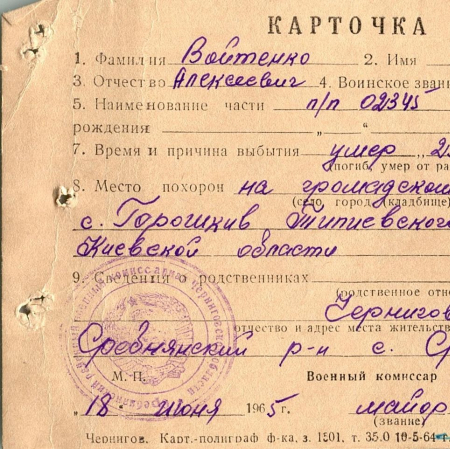 КАРТОЧКА
1. Фамилия Войтенко 2. Имя
3. Отчество Алексеевич 4. Воинское зван
5. Наименование части п/п 02345
рождения „ “
7. Время и причина выбытия умер „2
(погиб, умер от ра
8. Место похорон на громадском
(село, город (кладбище)
с. Горошків Тетиевского
Киевской области
9. Сведения о родственниках
(родственное отно
Чернигов
отчество и адрес места жительств
Сребнянский р-н с. Ср
М. П. Военный комиссар
„18 июня 1965г. майор
(звание)
Чернигов. Карт.-полиграф ф-ка, з. 1501, т. 35.0 10-5-64 г.